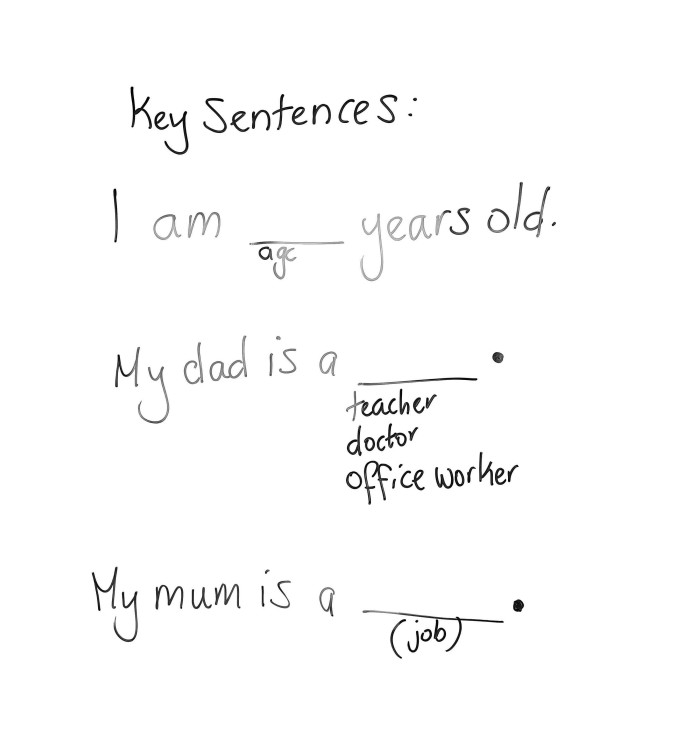 Key Sentences:
I am ____ years old.
age
My dad is a ____.
teacher
doctor
office worker
My mum is a ____.
(job)